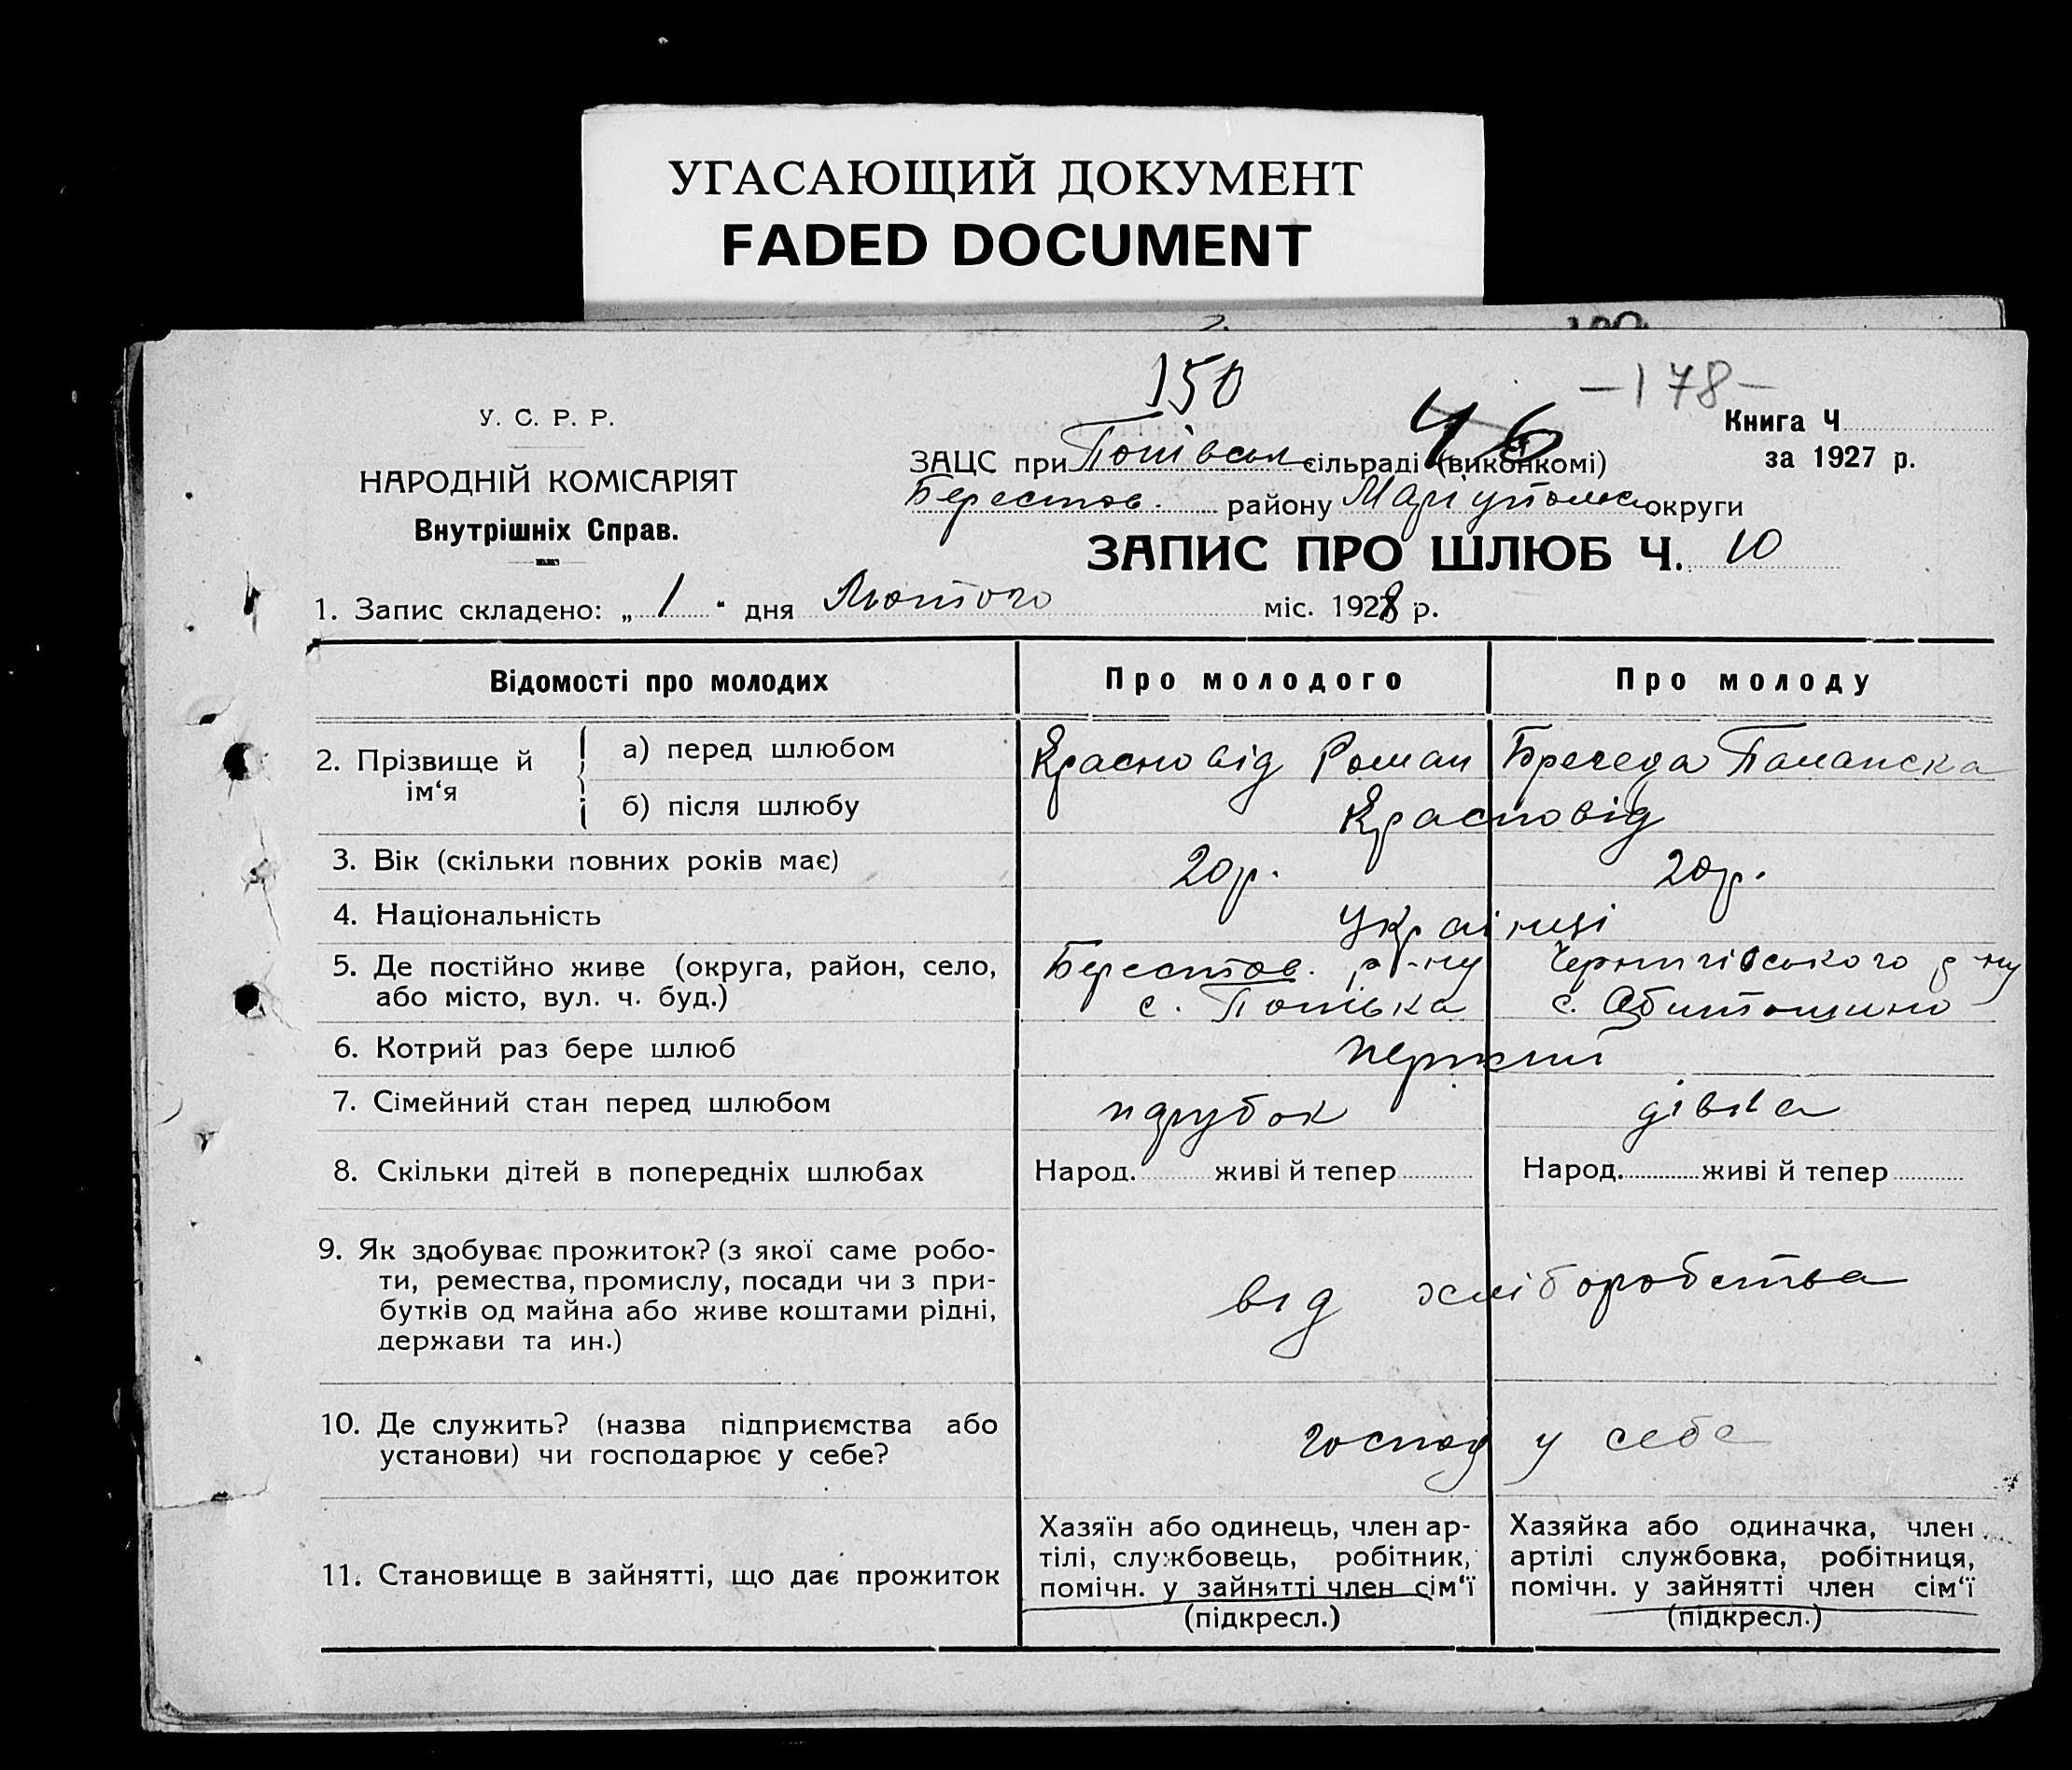 УГАСАЮЩИЙ ДОКУМЕНТ
FADED DOCUMENT
150
46
—178—
У. С. Р. Р.
НАРОДНІЙ КОМІСАРІЯТ
Внутрішніх Справ.
Книга Ч
за 1927 р.
ЗАЦС при Попівськ сільраді (виконкомі)
Берестов. району Маріупольс округи
ЗАПИС ПРО ШЛЮБ Ч. 10
1. Запис складено: „ 1 “ дня Лютого міс. 1928 р.
Відомості про молодих
Про молодого
Про молоду
2. Прізвище й ім‘я
а) перед шлюбом
Красновід Роман
Бречеда
б) після шлюбу
Красновід
3. Вік (скільки повних років має)
20 р.
20 р.
4. Національність
Українці
5. Де постійно живе (округа, район, село,
або місто, вул. ч. буд.)
Берестов. р-ну
с. Попівка
Чернигівського р-ну
с.
6. Котрий раз бере шлюб
перший
7. Сімейний стан перед шлюбом
парубок
дівка
8. Скільки дітей в попередніх шлюбах
Народ. живі й тепер
Народ. живі й тепер
9. Як здобуває прожиток? (з якої саме робо-
ти, ремества, промислу, посади чи з при-
бутків од майна або живе коштами рідні,
держави та ин.)
від хліборобства
10. Де служить? (назва підприємства або
установи) чи господарює у себе?
господ у себе
11. Становище в зайнятті, що дає прожиток
Хазяїн або одинець, член ар-
тілі, службовець, робітник,
помічн. у зайнятті член сім‘ї
(підкресл.)
Хазяйка або одиначка, член
артілі службовка, робітниця,
помічн. у зайнятті член сім‘ї
(підкресл.)